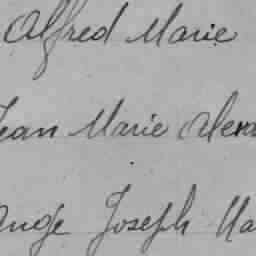 Alfred Marie
Jean Marie
Ange Joseph